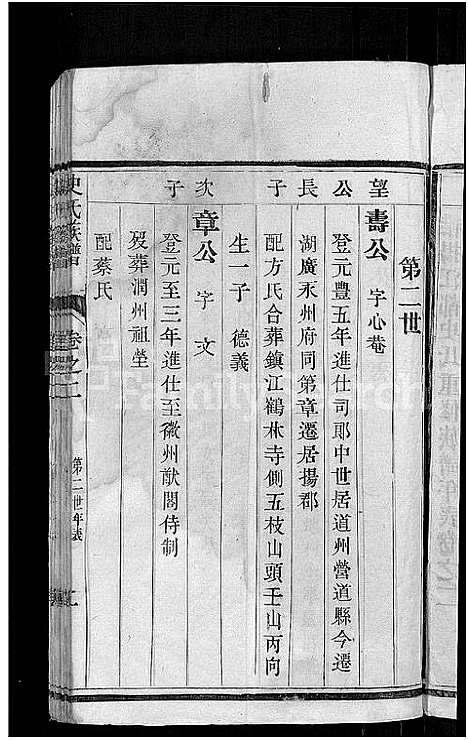 第二世
望公長子
壽公 字心菴
登元豐五年進仕司郎中世居道州營道縣今遷
湖廣永州府同第章遷居揚郡
配方氏合葬鎮江鶴林寺側五枝山頭壬山丙向
生一子 德義
次子
章公 字文
登元至三年進仕至徽州猷閣侍制
歿葬潤州祖塋
配蔡氏
史氏族譜
卷之二
第二世年表